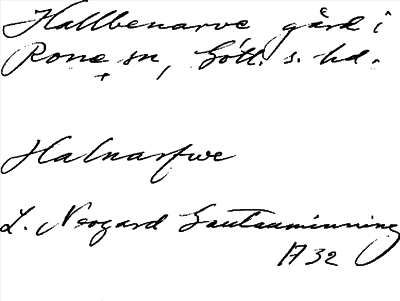 Hallbenarve gård i
Rone sn, Gotl. s. hd.
Halnarfwe
L. Neogard Gautauminning
1732